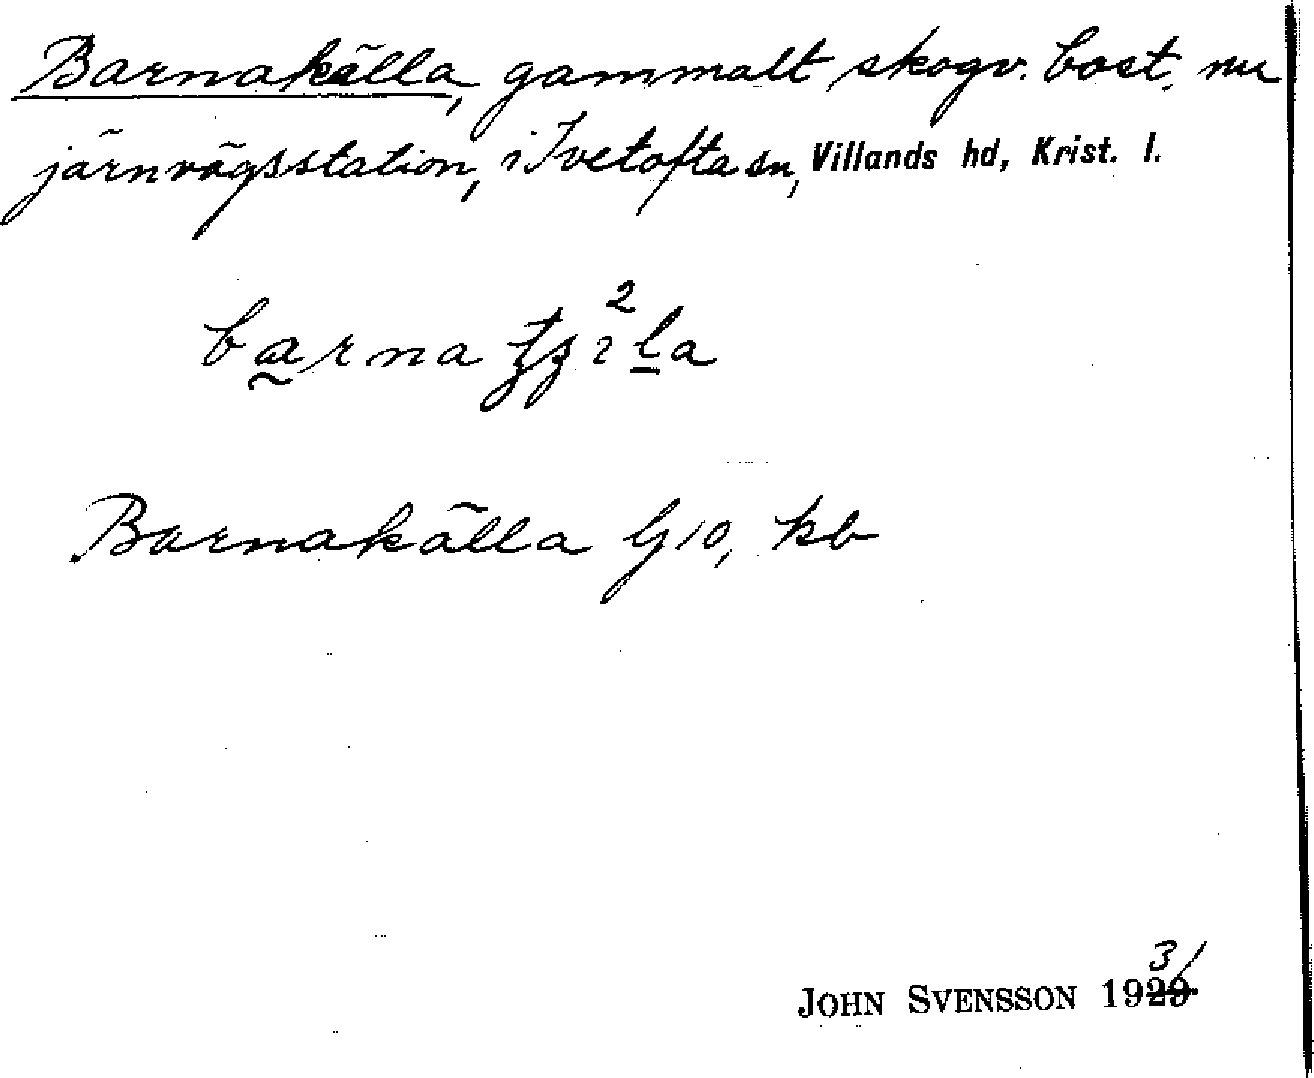 Barnakälla, gammalt skogv. bost. nu
järnvägsstation, i Ivetofta sn, Villands hd, Krist. l.
Barnakälla G10, kb
JOHN SVENSSON 1931